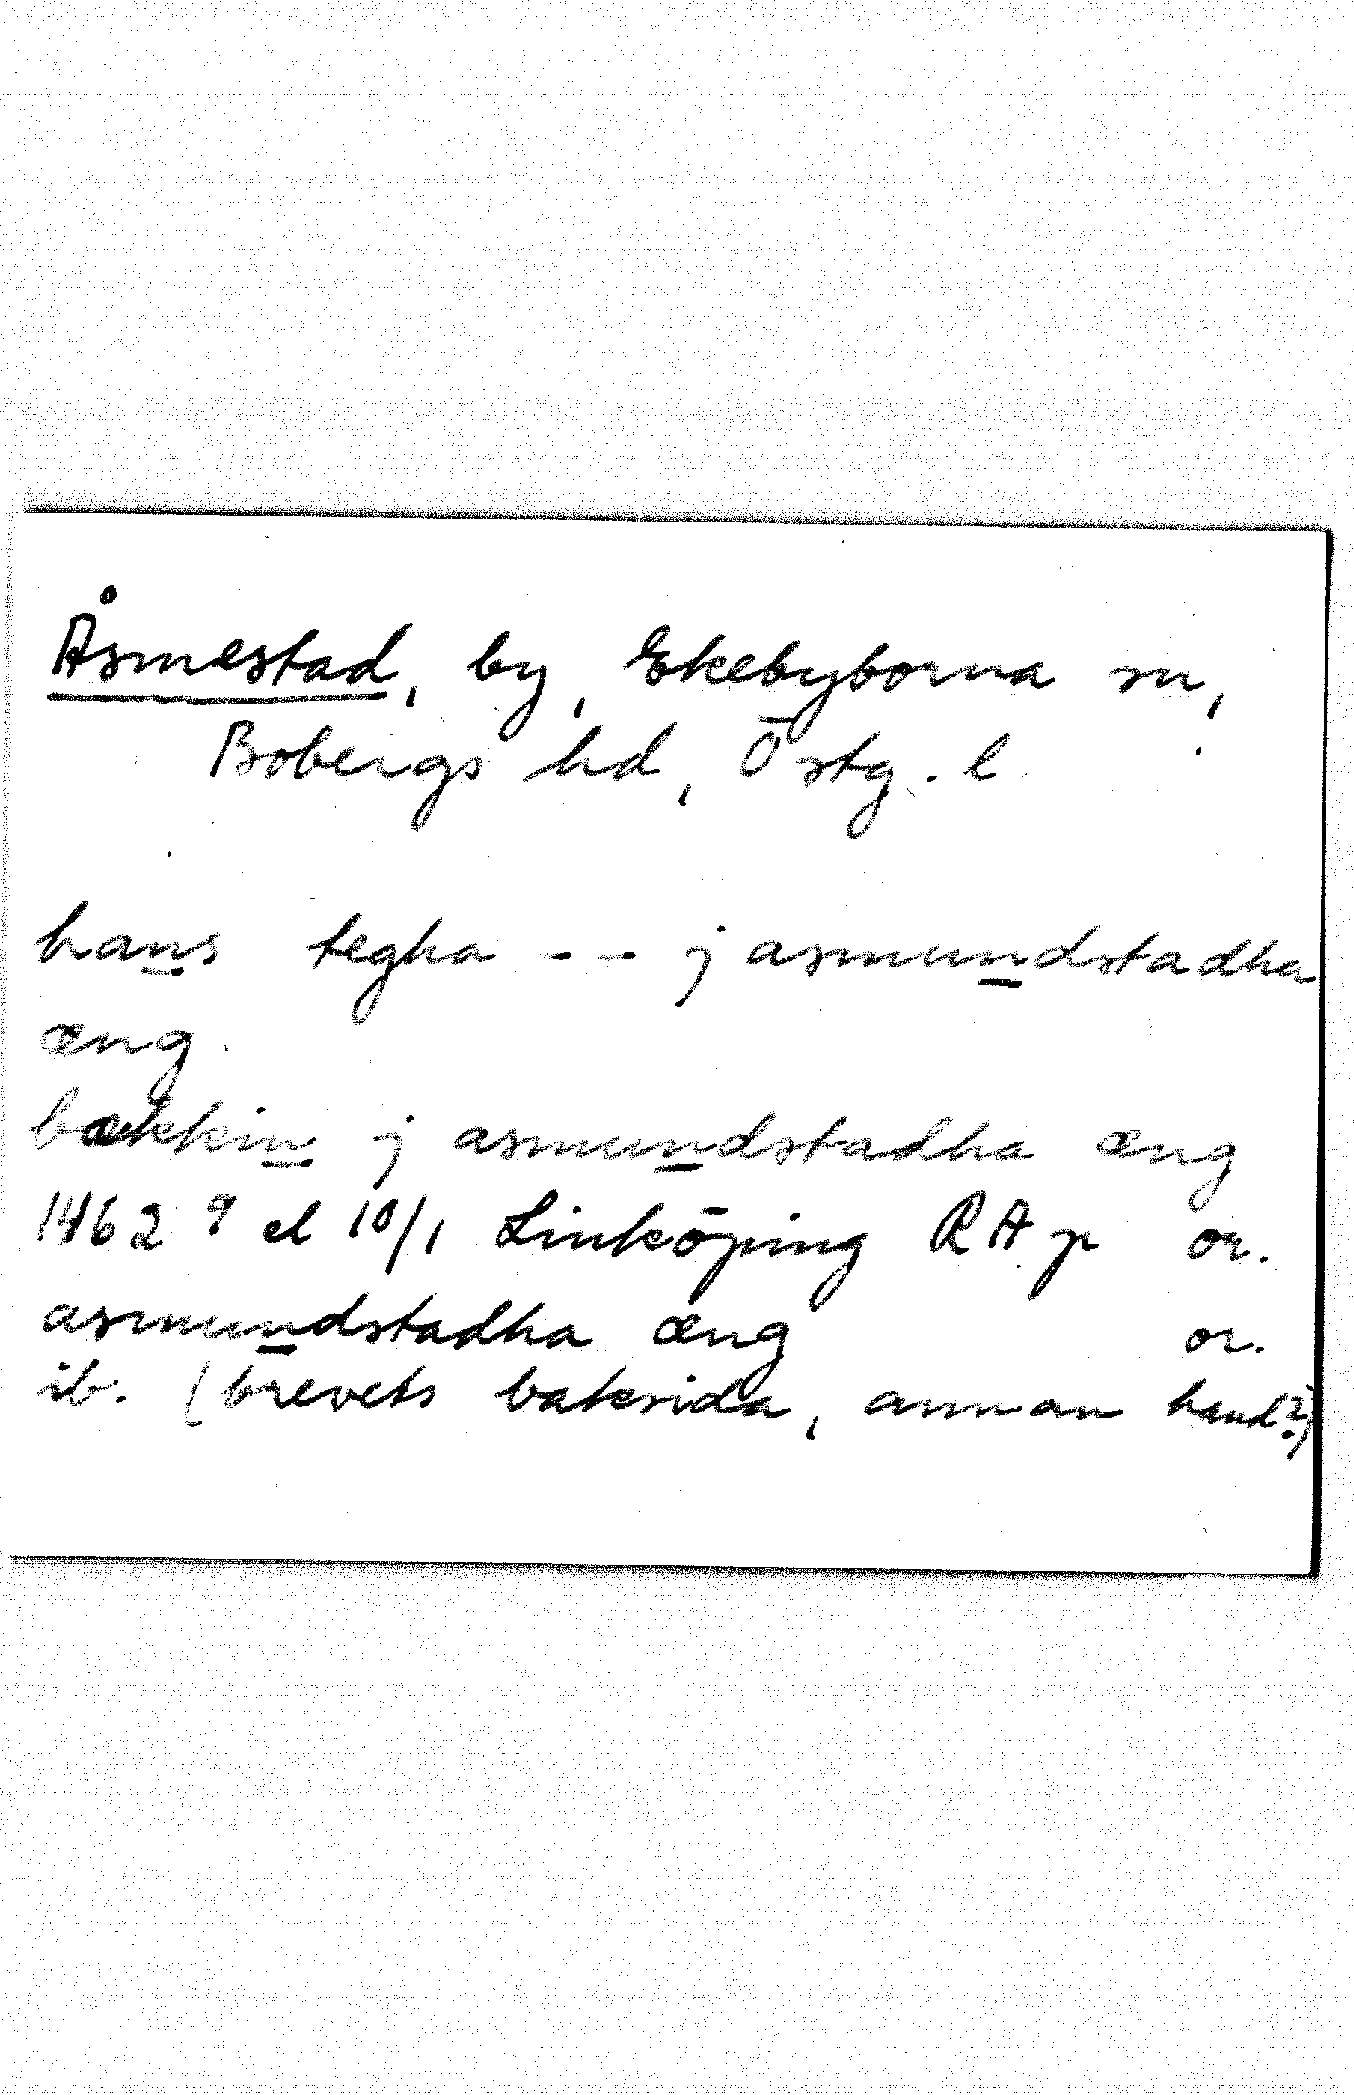 Åsmestad, by, Ekebyborna sn,
Bobergs hd, Östg. l
hans tegha - - j asmundstadha
æng.
bækkin j asmundstadha æng
1462 9 el 10/1 Linköping RAp or.
asmundstadha æng or.
ib. (brevets baksida, annan hand?)